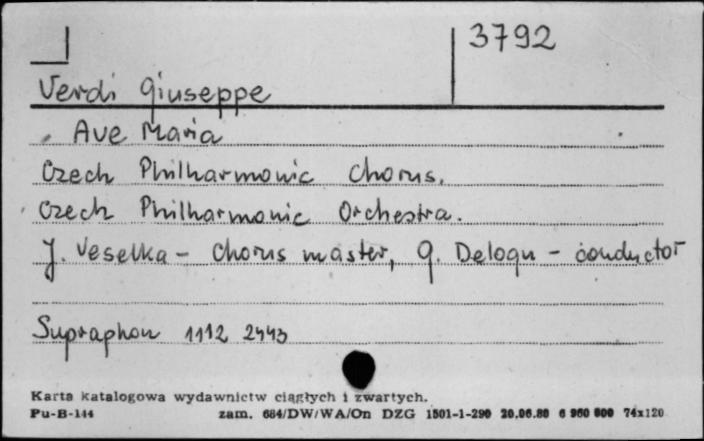 3792
Verdi Giuseppe
Ave Maria
Czech Philharmonic Chorus.
Czech Philharmonic Orchestra.
J. Veselka - Chorus master, G. Delogu - conductor
Supraphon 1112 2443
Karta katalogowa wydawnictw ciągłych i zwartych.
Pu-B-144 zam. 684/DW/WA/On DZG 1501-1-290 20.06.80 6 960 000 74x120